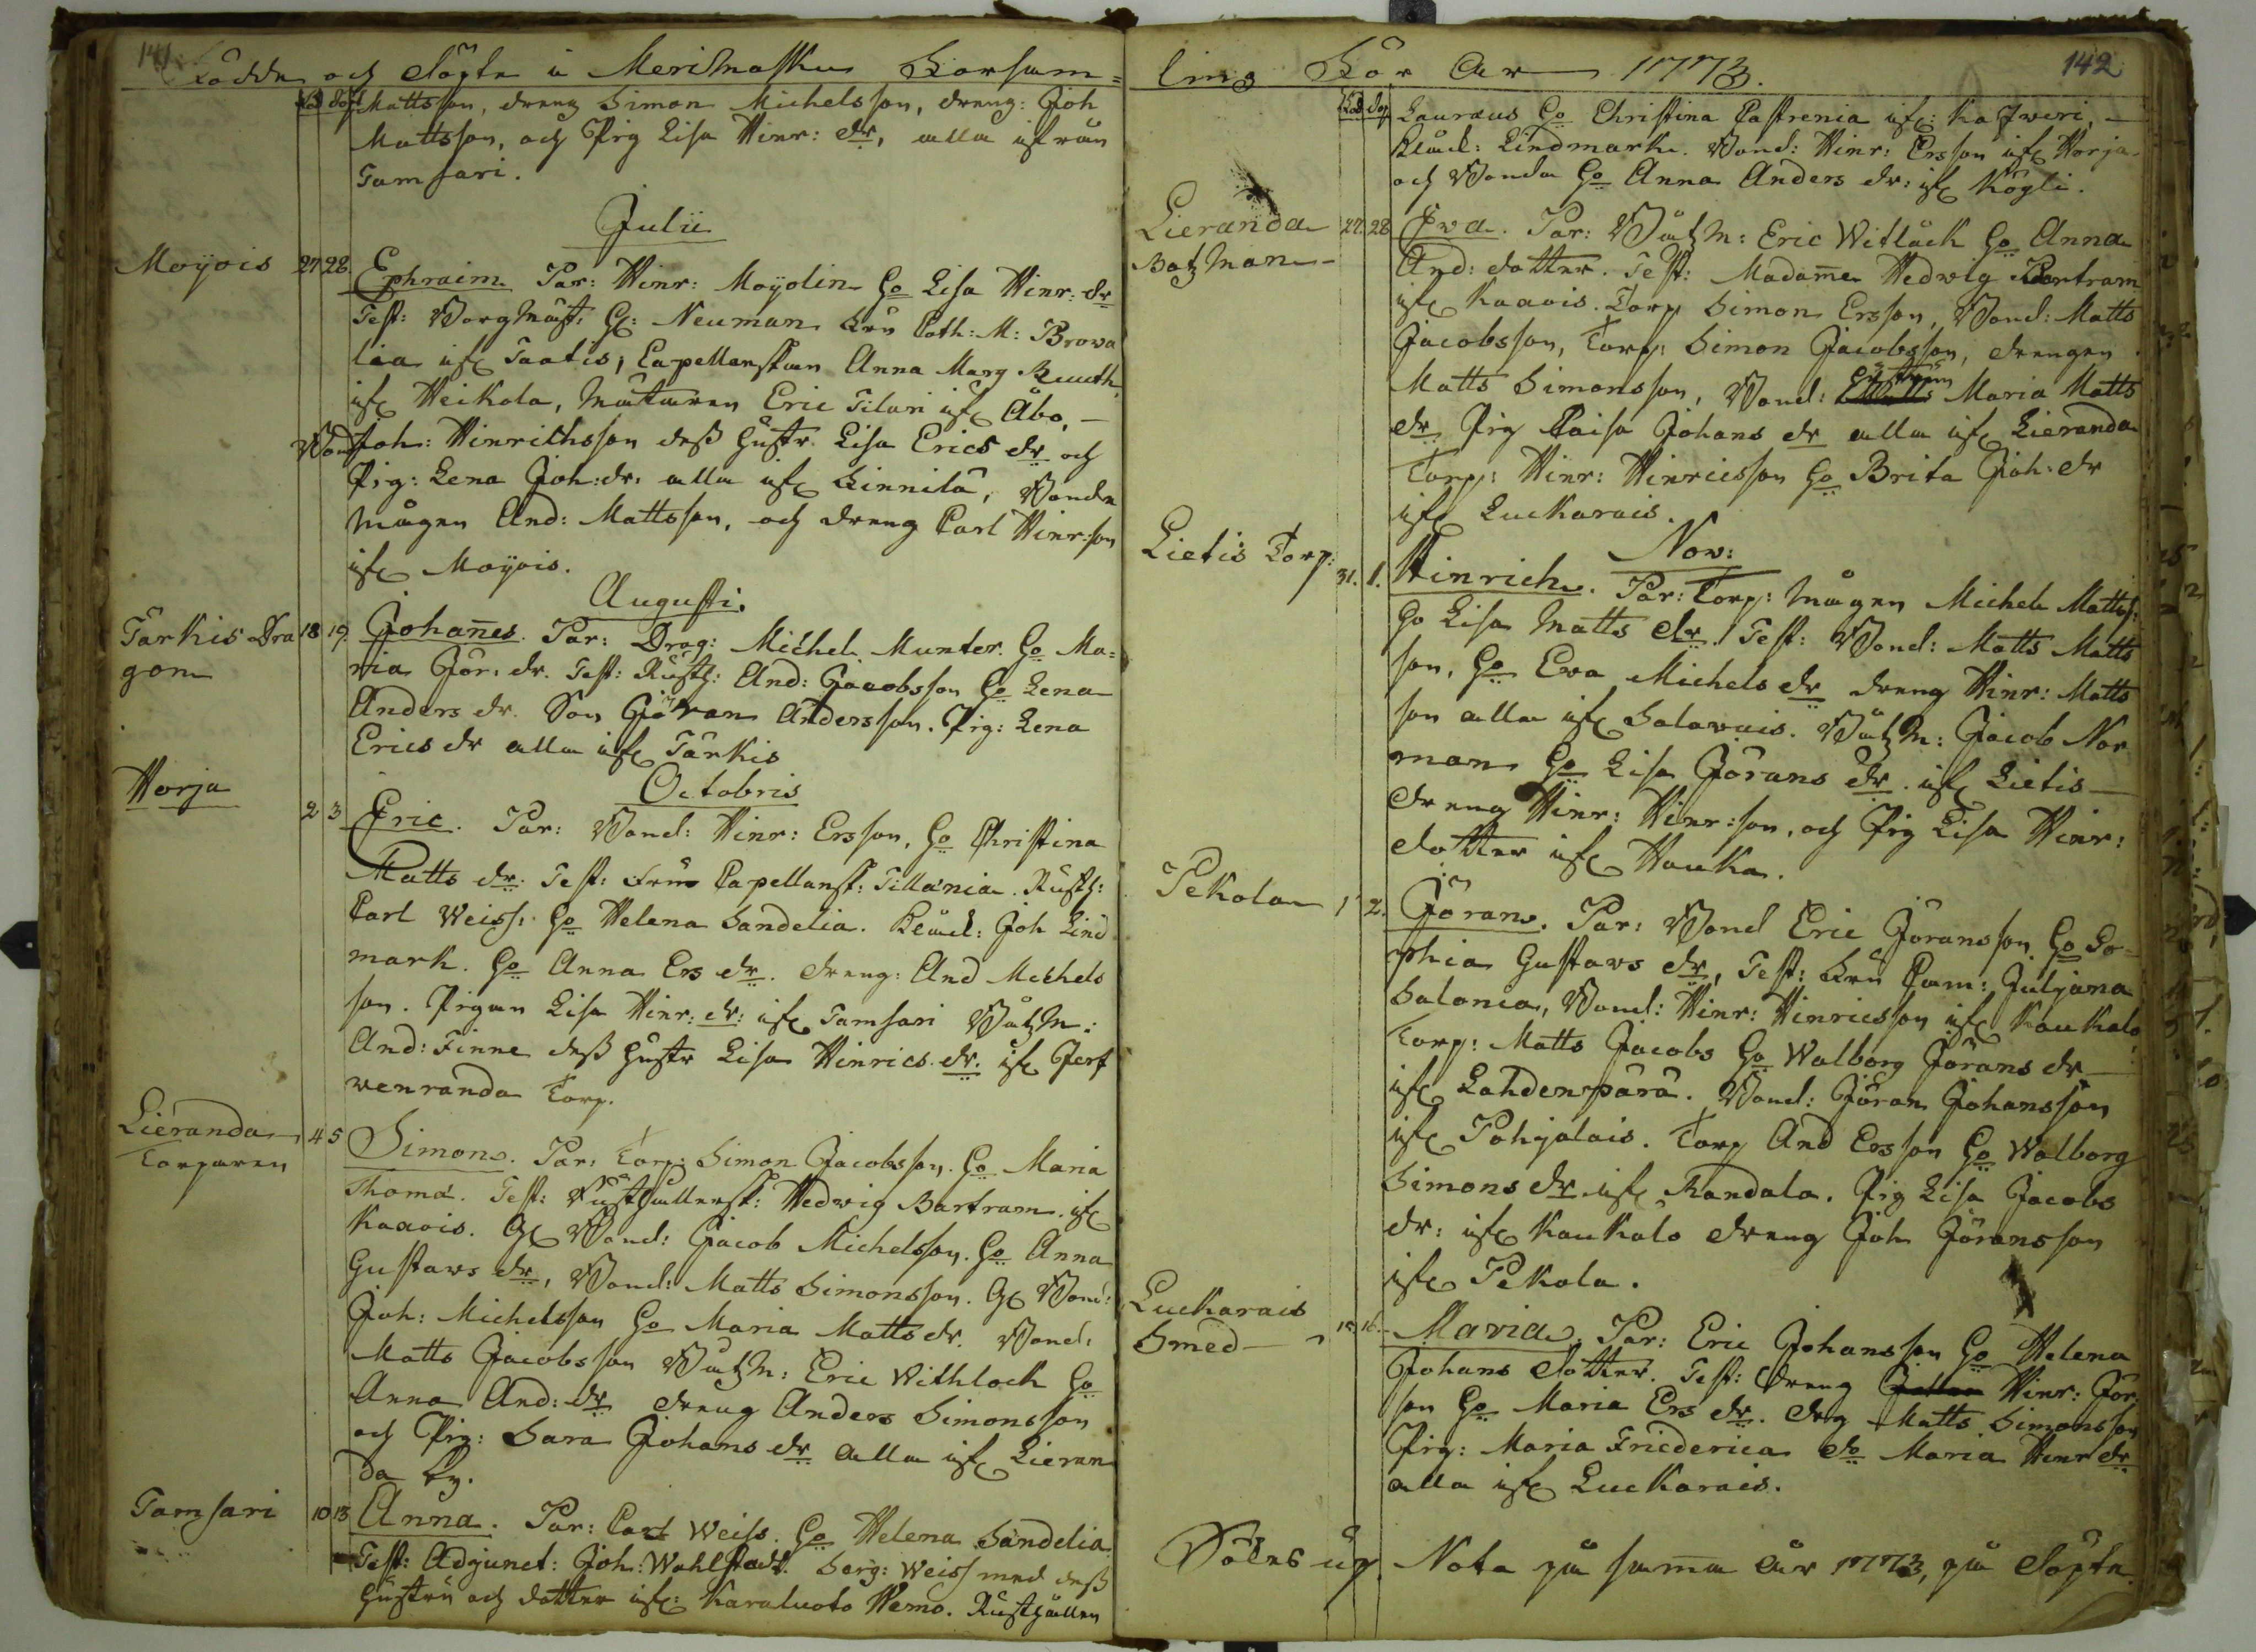 141
Födde och Döpte i Merimasku Församl=
Föd Döpt Mattsson, dreng Simon Michelsson, dreng: Joh
Mattsson, och Pig Lisa Hinr: dr, alla ifrån
Tamsari.
Julii
Moÿois 27 28. Ephraim Par: Hinr: Moÿolin Ho Lisa Hinr: dr
Test: Borgmäst: G: Neuman Fru Cath: M: Browa
lia ifr Taatis, Capellanskan Anna Marg Ruuth
ifr Heikola, Mätaren Eric Tilari ifr Åbo, —
Bond Joh: Hinrichsson dess hustr. Lisa Erics dr och
Pig: Lena Joh: dr. alla ifr Sinnilä, Bonde
mågen And: Mattsson, och dreng Carl Hinr:son
ifr Moÿois.
Augusti.
Tärkis Dra 18 19. Johañes. Par: Drag: Michel Munter. Ho Ma=
gon ria Jör. dr. Test: Rusth: And: Jacobsson Ho Lena
Anders dr. Son Göran Andersson. Pig: Lena
Erics dr alla ifr Tärkis
Octobris
Horja 2 3 Eric. Par: Bond: Hinr: Ersson, Ho Christina
Matts dr. Test: Fru Capellansk: Tillænia. Rusth:
Carl Weiss: Ho Helena Sandelia. Klåck: Joh Lind
mark. Ho Anna Ers dr. dreng: And Michels
son. Pigan Lisa Hinr: dr: ifr Tamsari Båtzm:
And: Finne dess hustr Lisa Hinrics dr. ifr Jerf
wenranda Torp.
Lieranda 4 5 Simon. Par: Torp: Simon Jacobsson. Ho Maria
Torparen Thomæ. Test: Rusthållersk: Hedwig Bartram. ifr
Kaaois. Gl Bond: Jacob Michelsson. Ho Anna
Gustavs dr, Bond: Matts Simonsson. Gl Bond:
Joh: Michelsson Ho Maria Matts dr. Bond:
Matts Jacobsson Båtzm: Eric Withlock Ho
Anna And: dr dreng Anders Simonsson
och Pig: Sara Johans dr alla ifr Lieran
da by.
Tamsari 10 13 Anna. Par: Carl Weiss. Ho Helena Sandelia
Test: Adjunct: Joh: Wahlstadt. Serg: Weiss med dess
hustru och dotter ifr: Karaluoto Nemo. Rusthållen
142
lings För År 1773.
Föd Döp Lauræus Ho Christina Castrenia ifr: Kaiweri, —
Klåck: Lindmark. Bond: Hinr: Ersson ifr Horja
och Bonde Ho Anna Anders dr: ifr Kögli.
Lieranda 27. 28 Eva. Par: Båtzm: Eric Witlåck Ho Anna
Botzman And: dotter. Test: Madame Hedwig Bartram
ifr Kaaois. Torp Simon Ersson, Bond: Matts
Jacobsson, Torp: Simon Jacobsson, drengen
Matts Simonsson, Bond: Maria Matts
dr Pig Caisa Johans dr alla ifr Lieranda
Torp: Hinr: Hinricsson Ho Brita Joh: dr
ifr Luckarais.
Nov:
Lietis Torp: 31. 1. Hinrich. Par: Torp: mågen Michel Matts:
Ho Lisa Matts dr. Test: Bond: Matts Matts
son, Ho Eva Michels dr dreng Hinr: Matts
son alla ifr Salavais. Båtzm: Jacob Nor
man Ho Lisa Görans dr. ifr Lietis —
dreng Hinr: Hinr:son, och Pig Lisa Hinr:
dotter ifr Hauka.
Pekola 1 2. Jöran. Par: Bond Eric Jöransson Ho So=
phia Gustavs dr, Test: Fru Cam: Juljana
Salonia, Bond: Hinr: Hinricsson ifr Kaukalo
Torp: Matts Jacobs Ho Walborg Jörans dr —
ifr Lahdenpärä. Bond: Jöran Johansson
ifr Pohjalais. Torp And Ersson Ho Walborg
Simons dr ifr Randala. Pig Lisa Jacobs
dr: ifr Kaukalo dreng Joh Jöransson
ifr Pekola.
Luckarais 15 16. Maria. Par: Eric Johansson Ho Helena
Smed Johans dotter. Test: dreng Hinr: Jör
son Ho Maria Ers dr. drg Matts Simonsson
Pig: Maria Fridericæ do Maria Hinr dr
alla ifr Luckarais.
Nota på samma år 1773, på Döpte.